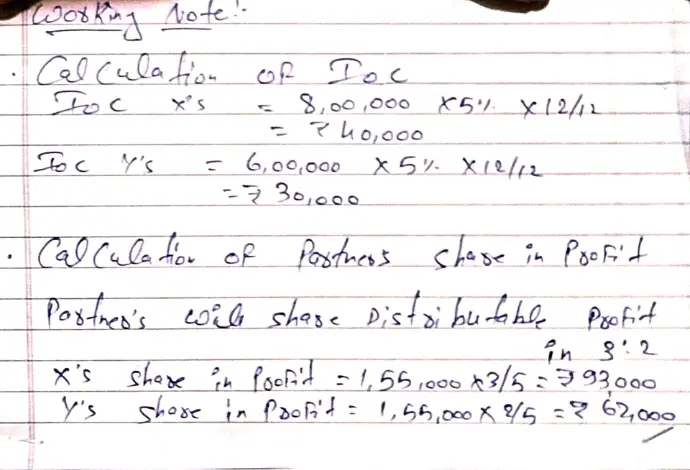 Working Note:-
• Calculation of IOC
IOC X's = 8,00,000 X5% X12/12
= ₹40,000
IOC Y's = 6,00,000 X 5% X12/12
=₹ 30,000
• Calculation of Partners share in Profit
Partner's will share Distributable Profit
in 3:2
X's share in Profit = 1,55,000 x3/5 = ₹93,000
Y's share in Profit = 1,55,000 X 2/5 = ₹ 62,000